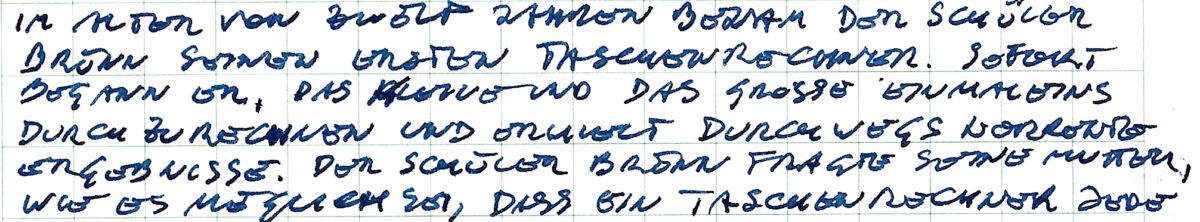 IM ALTER VON ZWÖLF JAHREN BEKAM DER SCHÜLER
BRÖNN SEINEN ERSTEN TASCHENRECHNER. SOFORT
BEGANN ER, DAS KLEINE UND DAS GROSSE EINMALEINS
DURCHZURECHNEN UND ERHIELT DURCHWEGS KORREKTE
ERGEBNISSE. DER SCHÜLER BRÖNN FRAGTE SEINE MUTTER,
WIE ES MÖGLICH SEI, DASS EIN TASCHENRECHNER JEDE